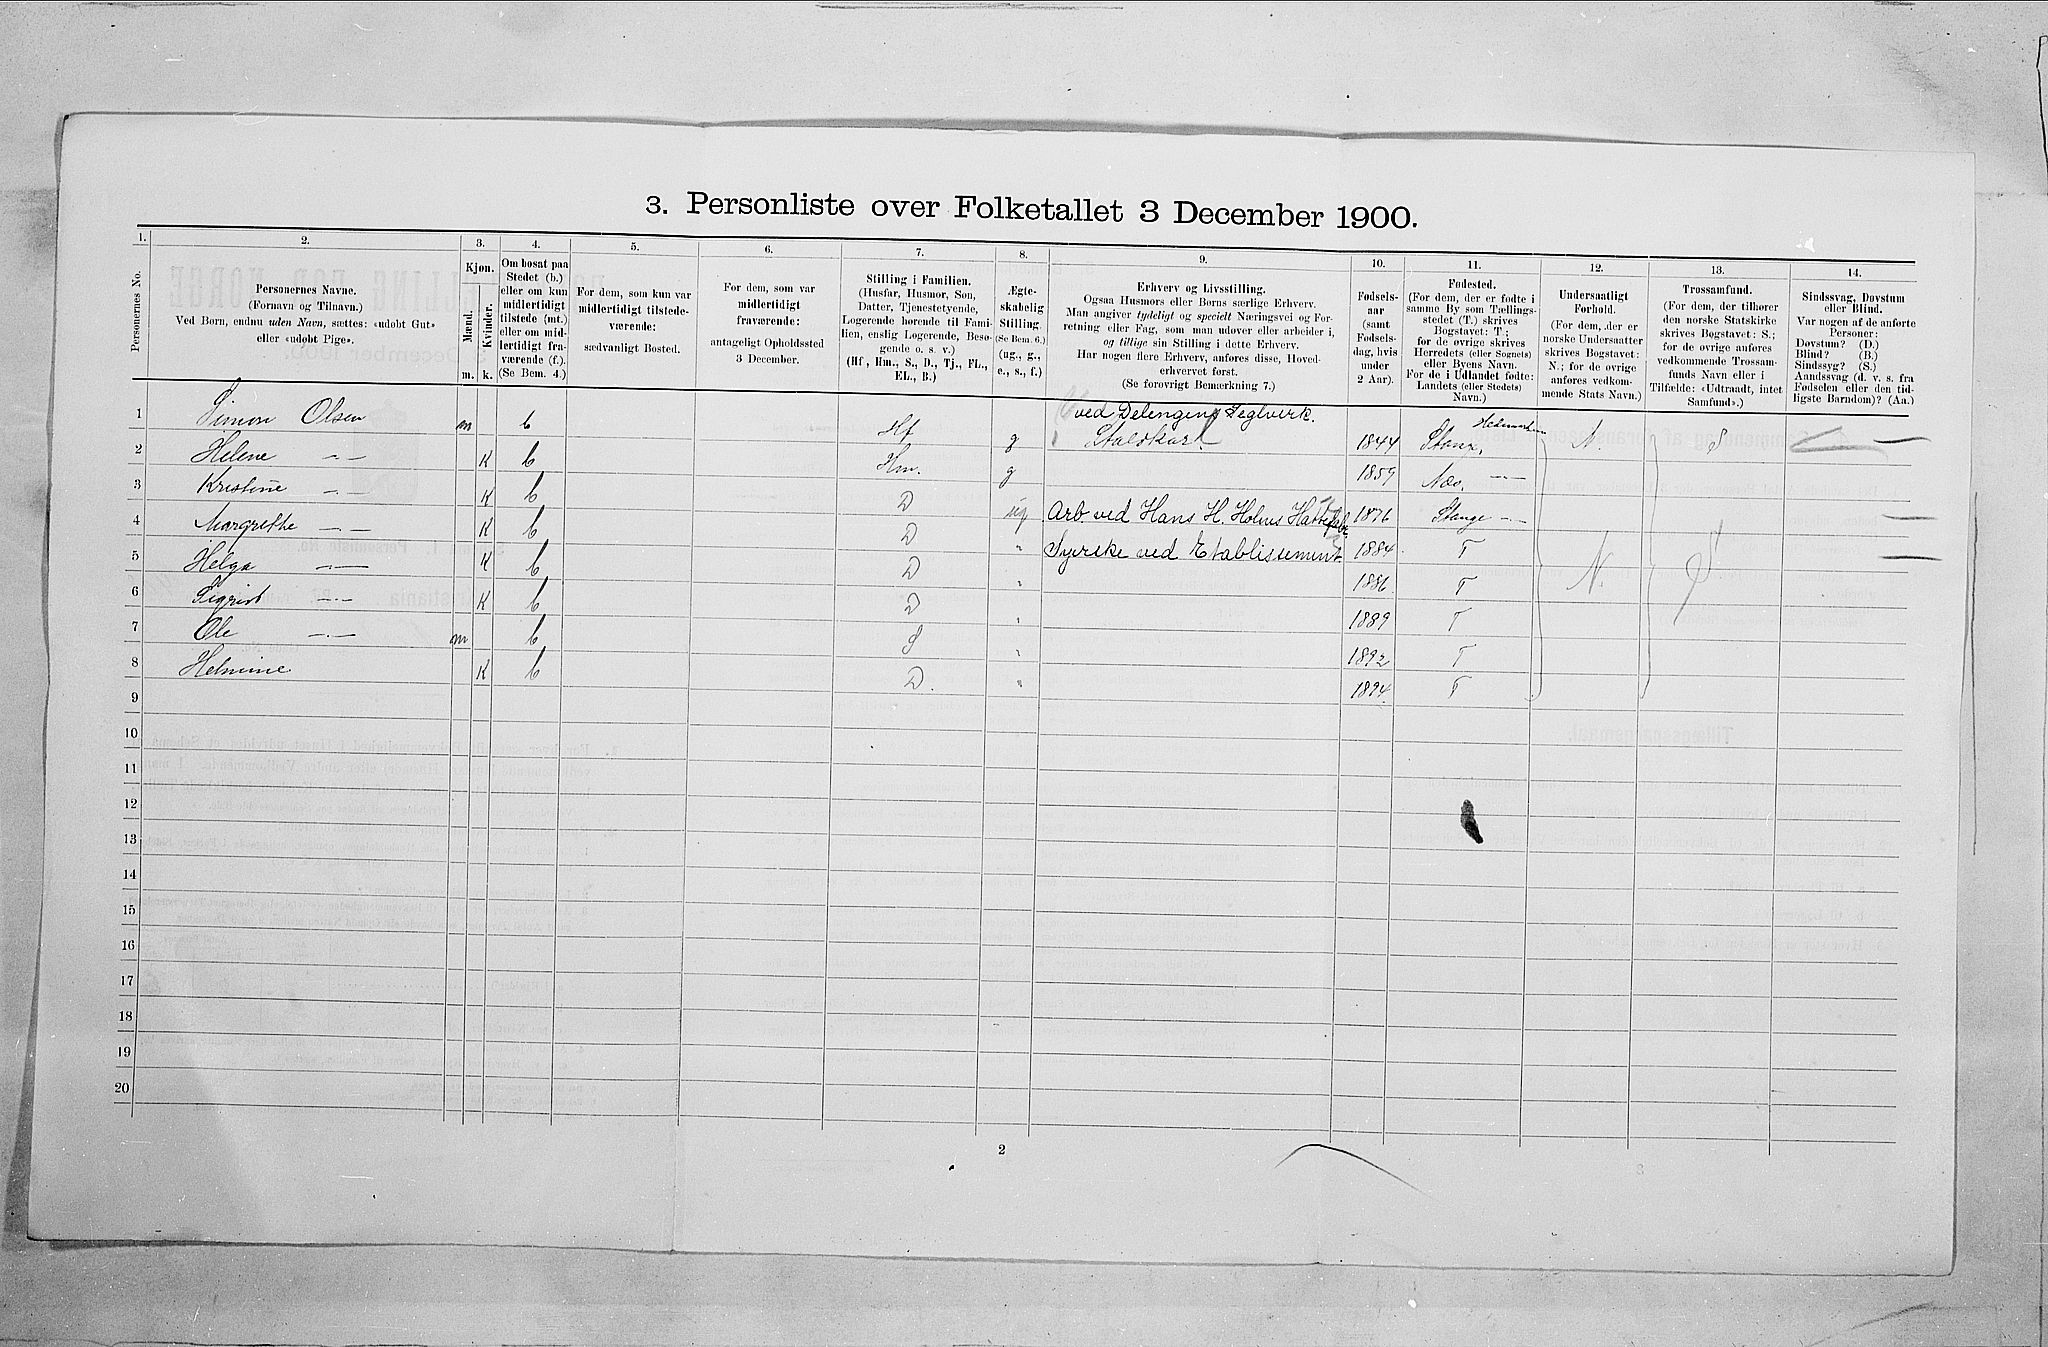 3. Personliste over Folketallet 3 December 1900.
1. 2. 3. 4. 5. 6. 7. 8. 9. 10. 11. 12. 13. 14.
Personernes No.
Personernes Navne.
(Fornavn og Tilnavn.)
Ved Børn, endnu uden Navn, sættes: «udøbt Gut»
eller «udøbt Pige».
Kjøn.
Mænd. Kvinder.
m. k.
Om bosat paa
Stedet (b.)
eller om kun
midlertidigt
tilstede (mt.)
eller om mid-
lertidigt fra-
værende (f.).
(Se Bem. 4.)
For dem, som kun var
midlertidigt tilstede-
værende:
sædvanligt Bosted.
For dem, som var
midlertidigt
fraværende:
antageligt Opholdssted
3 December.
Stilling i Familien.
(Husfar, Husmor, Søn,
Datter, Tjenestetyende,
Logerende hørende til Fami-
lien, enslig Logerende, Besø-
gende o. s. v.)
(Hf., Hm., S., D., Tj., FL.,
EL., B.)
Ægte-
skabelig
Stilling.
(Se Bem. 6.)
(ug., g.,
e., s., f.)
Erhverv og Livsstilling.
Ogsaa Husmors eller Børns særlige Erhverv.
Man angiver tydeligt og specielt Næringsvei og For-
retning eller Fag, som man udøver eller arbeider i,
og tillige sin Stilling i dette Erhverv.
Har nogen flere Erhverv, anføres disse, Hoved-
erhvervet først.
(Se forøvrigt Bemærkning 7.)
Fødsels-
aar
(samt
Fødsels-
dag, hvis
under
2 Aar).
Fødested.
(For dem, der er fødte i
samme By som Tællings-
stedet (T.) skrives
Bogstavet: T;
for de øvrige skrives
Herredets (eller Sognets)
eller Byens Navn.
For de i Udlandet fødte:
Landets (eller Stedets)
Navn.)
Undersaatligt
Forhold.
(For dem, der er
norske Undersaatter
skrives Bogstavet:
N.; for de øvrige
anføres vedkom-
mende Stats Navn.)
Trossamfund.
(For dem, der tilhører
den norske Statskirke
skrives Bogstavet: S.;
for de øvrige anføres
vedkommende Trossam-
funds Navn eller i
Tilfælde: «Udtraadt, intet
Samfund».)
Sindssvag, Døvstum
eller Blind.
Var nogen af de anførte
Personer:
Døvstum? (D.)
Blind? (B.)
Sindssyg? (S.)
Aandssvag (d. v. s. fra
Fødselen eller den tid-
ligste Barndom)? (Aa.)
1 Simon Olsen m b Hf g ved Teglverk. Staldkar 1844 N. S
2 Helene —"— K b Hm. g 1859 —"—
3 Kristine —"— K b D ug Arb. ved Hans H. Holms 1876 Stange —"—
4 Margrethe —"— K b D " Syerske ved Etablissement 1884 T
5 Helga —"— K b D " 1886 T N. S
6 Sigrid —"— K b D " 1889 T
7 Ole —"— m b S " 1892 T
8 Helmine K b D. " 1894 T
9
10
11
12
13
14
15
16
17
18
19
20
2